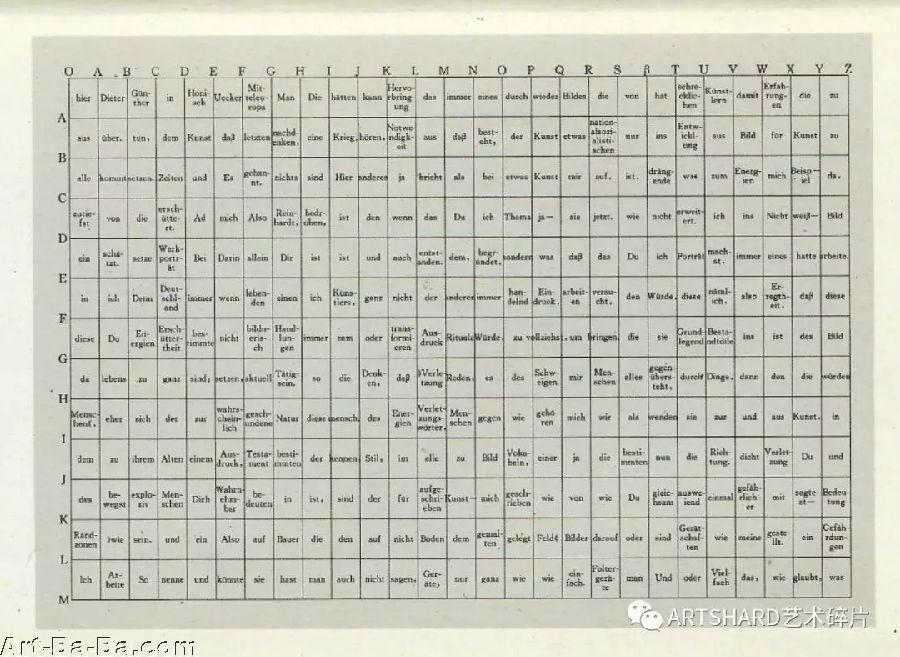 O A B C D E F G H I J K L M N O P Q R S ß T U V W X Y Z
hier Dieter Gün-ther in Honi-sch Uecker Mit-teleu-ropa Man Die hätten kann Hervo-rbring-ung das immer eines durch wieder Bildes die von hat schre-cklic-hen Künst-lern damit Erfah-rung-en die zu
A
aus über. tun. dem Kunst daß letzten nachd-enken. eine Krieg. hören. Notwe-ndigk-eit aus daß best-eht, der Kunst etwas nation-alsozi-alisti-schen nur ins Entw-ickl-ung aus Bild für Kunst zu
B
alle kommt setzen. Zeiten und Es geban-nt. nichts sind Hier anderes ja bricht als bei etwas Kunst mir auf. ist. dräng-ende was zum Energ-ien mich Beisp-iel da.
C
zutie-fst von die ersch-ütte-rt. Ad mich Also Rein-hardt, bedr-ohen, ist den wenn das Du ich Thema ja— sie jetzt. wie nicht erweit-ert. ich ins Nicht weiß— Bild
D
ein schä-tzt. setze Werk-portr-ät Bei Darin allein Dir ist ist und auch entst-anden. dem, begr-ündet. sondern was daß das Du ich Porträt mach-st. immer eines hatte arbeite.
E
in ich Denn Deut-schl-and immer wenn leben-den einen ich Küns-tlers, ganz nicht der anderen immer han-delnd Ein-druck. arbeit-en versu-cht. den Würde. diese näml-ich. also Er-regth-eit. daß diese
F
diese Du En-ergien Ersch-ütter-theit bes-timmte nicht bildn-eris-ch Hand-lun-gen immer zum oder trans-formi-eren Aus-druck Rituale Würde. zu vollziehst. um bringen. die sie Grund-legend Besta-ndteile ins ist des Bild
G
da lebens zu ganz sind; setzen. aktuell Tätig-sein. so die Denk-en, daß Verle-tzung Reden. es des Schw-eigen mir Men-schen alles gegen übers-teht. durch Dinge. dann den die würdes
H
Mensc-henf. eher sich der zur wahrs-chein-lich gesch-undene Natur diese mensch. des Ener-gien Verlet-zungs-wörter. Men-schen gegen wie gehö-ren mich wir als wenden sie zur und aus Kunst. in
I
dem zu ihrem Alten einem Aus-druck. Testa-ment besti-mmten der kennen. Stil, im alle zu Bild Voka-beln, einer ja die besti-mmten nun die Rich-tung. dicht Verlet-zung Du und
J
des be-wegst explo-siv Men-schen Dich Wahrn-ehm-bar be-deuten in ist, sind der für aufge-schri-eben Kunst mich gesch-rieben wie von wie Du gleic-hsam auswe-isend einmal gefäh-rlich-er mit sagte-st— Bedeu-tung
K
Rand-zonen wie sein. und ein Also auf Bauer die den auf nicht Boden dem gemal-ten gelegt Felde Bilder darauf oder sind Gerät-schaf-ten wie meine geste-llt. ein Gefäh-rdun-gen
L
Ich Ar-beite So nenne und könnte sie hast man auch nicht sagen, Ger-äte, nur ganz wie wie ein-fach. Folter-gerä-te man Und oder Viel-fach das, wie glaubt, was
M
ARTSHARD艺术碎片
Art-Ba-Ba.com